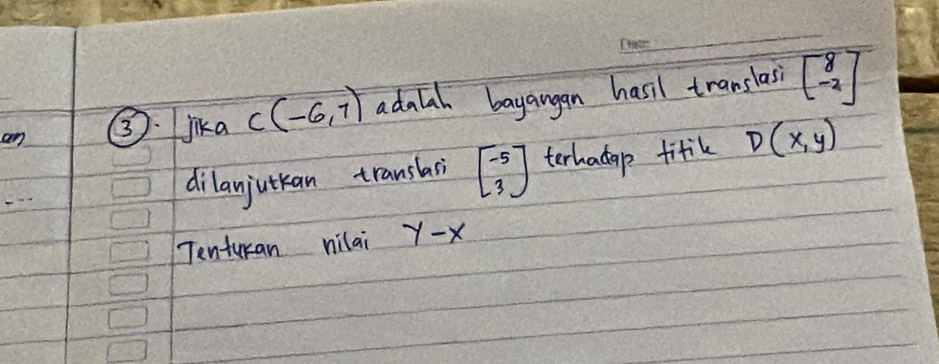 Date
an
③. Jika C(-6,7) adalah bayangan hasil translasi [8 -2]
dilanjutkan translasi [-5 3] terhadap titik D(x,y)
Tentukan nilai y-x